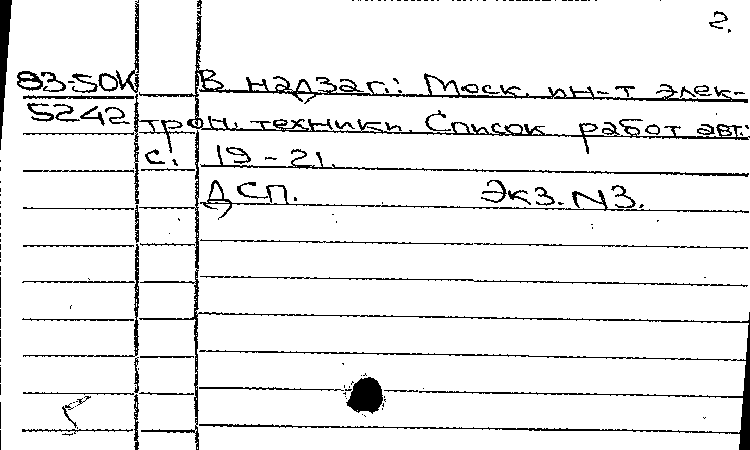 2.
83-50К В надзаг.: Моск. ин-т элек-
5242 трон. техники. Список работ авт.:
с. 19-21.
ДСП. Экз. N3.
5